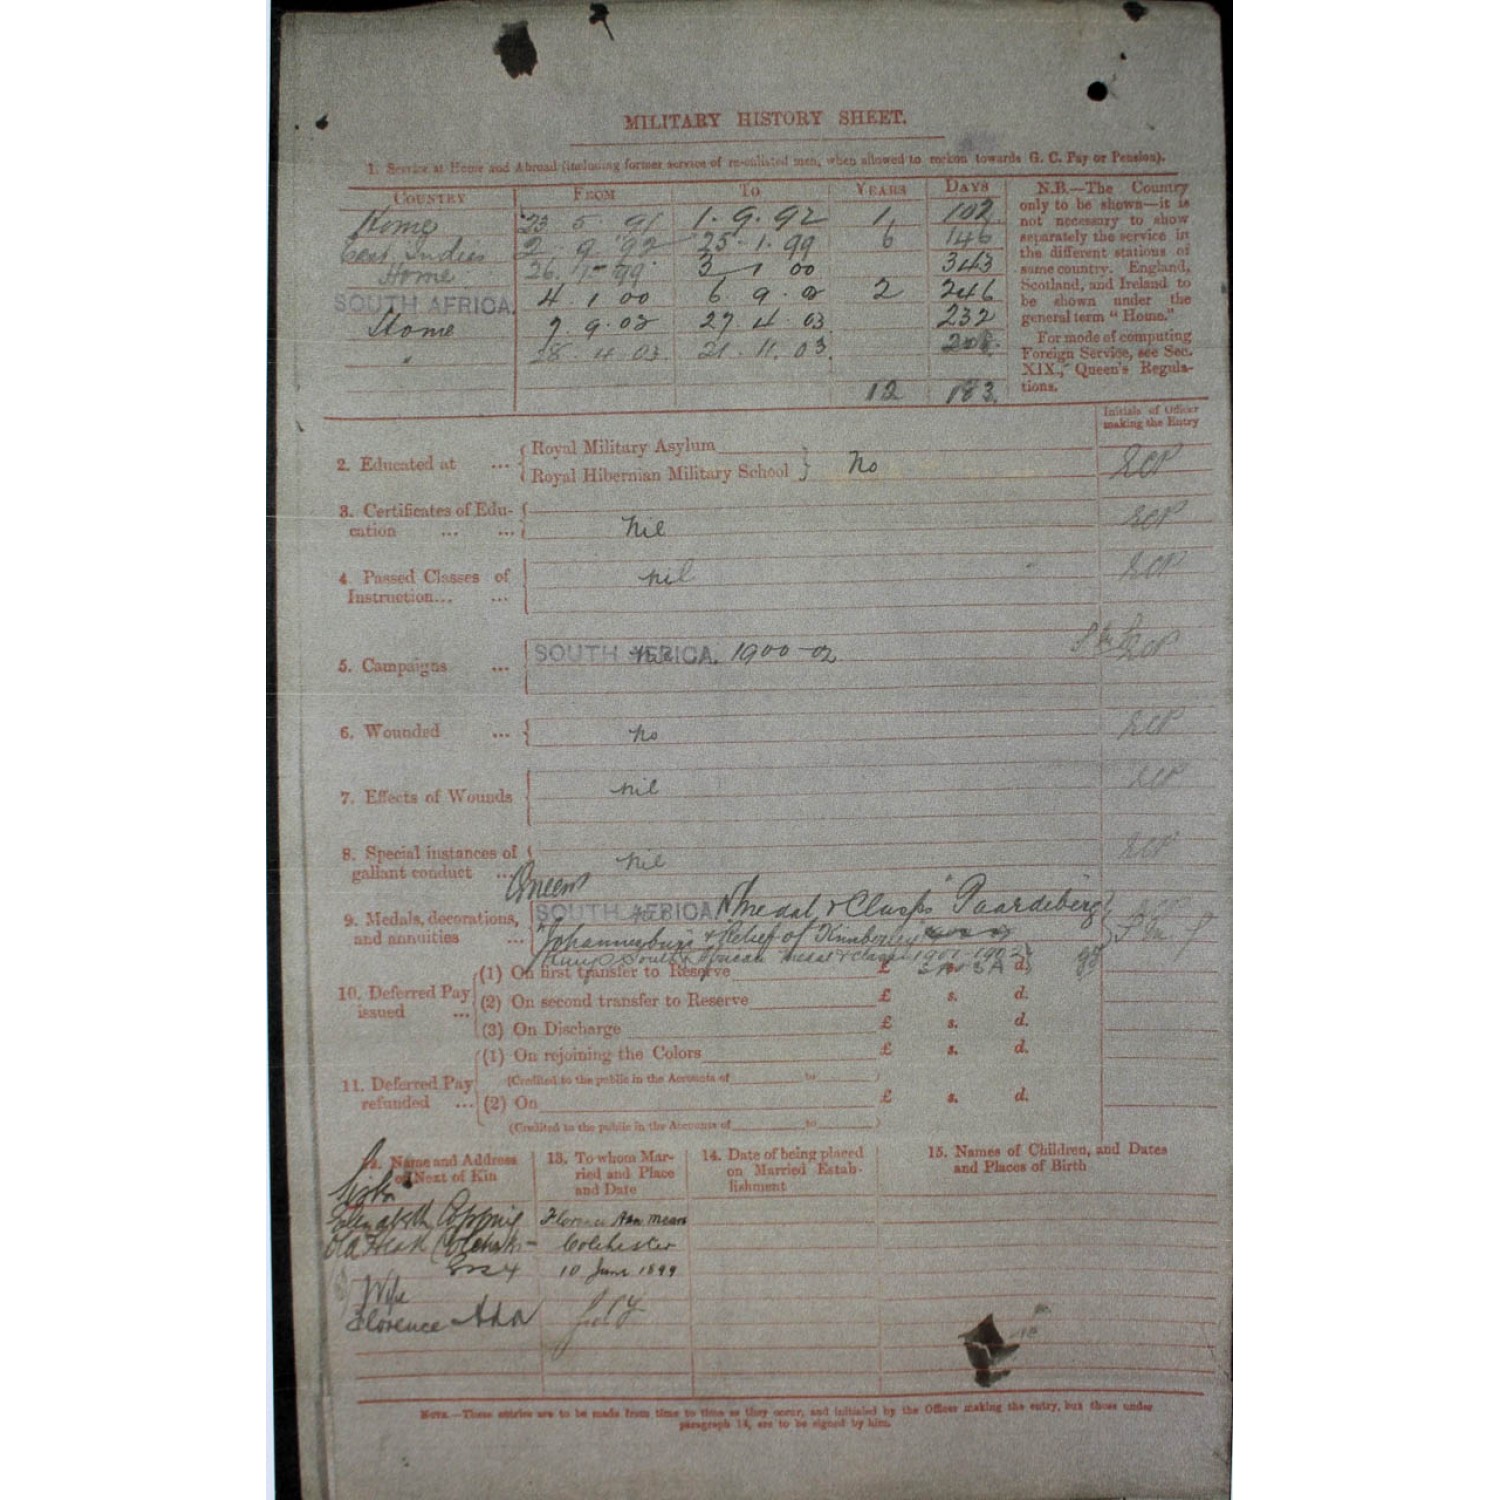 MILITARY HISTORY SHEET.
1. Service at Home and Abroad (including former service of re-enlisted men, when allowed to reckon towards G. C. Pay or Pension).
COUNTRY FROM TO YEARS DAYS
Home 23 5 91 1. 9. 92 1 102
East Indies 2 9 92 25. 1. 99 6 146
Home 26. 1. 99 3 1 00 343
SOUTH AFRICA. 4. 1 00 6. 9. 02 2 246
Home 7. 9. 02 27. 4. 03 232
" 28. 4. 03 21. 11. 03 208
12 183
N.B.—The Country
only to be shown—it is
not necessary to show
separately the service in
the different stations of
same country. England,
Scotland, and Ireland to
be shown under the
general term "Home."
For mode of computing
Foreign Service, see Sec.
XIX., Queen's Regula-
tions.
Initials of Officer
making the Entry
2. Educated at ... Royal Military Asylum
Royal Hibernian Military School No
3. Certificates of Edu-
cation ... ... Nil
4. Passed Classes of
Instruction... ... nil
5. Campaigns ... SOUTH AFRICA. 1900-02
6. Wounded ... No
7. Effects of Wounds nil
8. Special instances of
gallant conduct ... nil
Queens
9. Medals, decorations,
and annuities ... SOUTH AFRICA Medal & Clasps "Paardeberg"
"Johannesburg & Relief of Kimberley"
Kings South African medal & clasps 1901-1902
10. Deferred Pay
issued ...
(1) On first transfer to Reserve £ s. d.
(2) On second transfer to Reserve £ s. d.
(3) On Discharge £ s. d.
11. Deferred Pay
refunded ...
(1) On rejoining the Colors £ s. d.
(Credited to the public in the Accounts of to )
(2) On £ s. d.
(Credited to the public in the Accounts of to )
12. Name and Address
of Next of Kin
13. To whom Mar-
ried and Place
and Date
14. Date of being placed
on Married Estab-
lishment
15. Names of Children, and Dates
and Places of Birth
Sister
Elizabeth Copping
Old Heath Colchester
Essex
Wife
Florence Ada
Florence Ada Mears
Colchester
10 June 1899
NOTE.—These entries are to be made from time to time as they occur, and initialed by the Officer making the entry, but those under
paragraph 14, are to be signed by him.